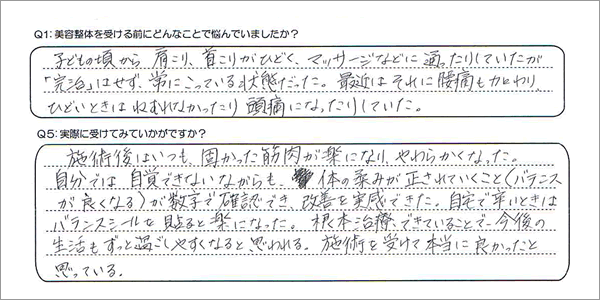 Q1:美容整体を受ける前にどんなことで悩んでいましたか?
子どもの頃から肩こり、首こりがひどく、マッサージなどに通ったりしていたが
「完治」はせず、常にこっている状態だった。最近はそれに腰痛も加わり、
ひどいときはねむれなかったり頭痛になったりしていた。
Q5:実際に受けてみていかがですか?
施術後はいつも、固かった筋肉が楽になり、やわらかくなった。
自分では自覚できないながらも、体の歪みが正されていくこと(バランス
が良くなる)が数字で確認でき、改善を実感できた。自宅で辛いときは
バランスシールを貼ると楽になった。根本治療できていることで、今後の
生活もずっと過ごしやすくなると思われる。施術を受けて本当に良かったと
思っている。